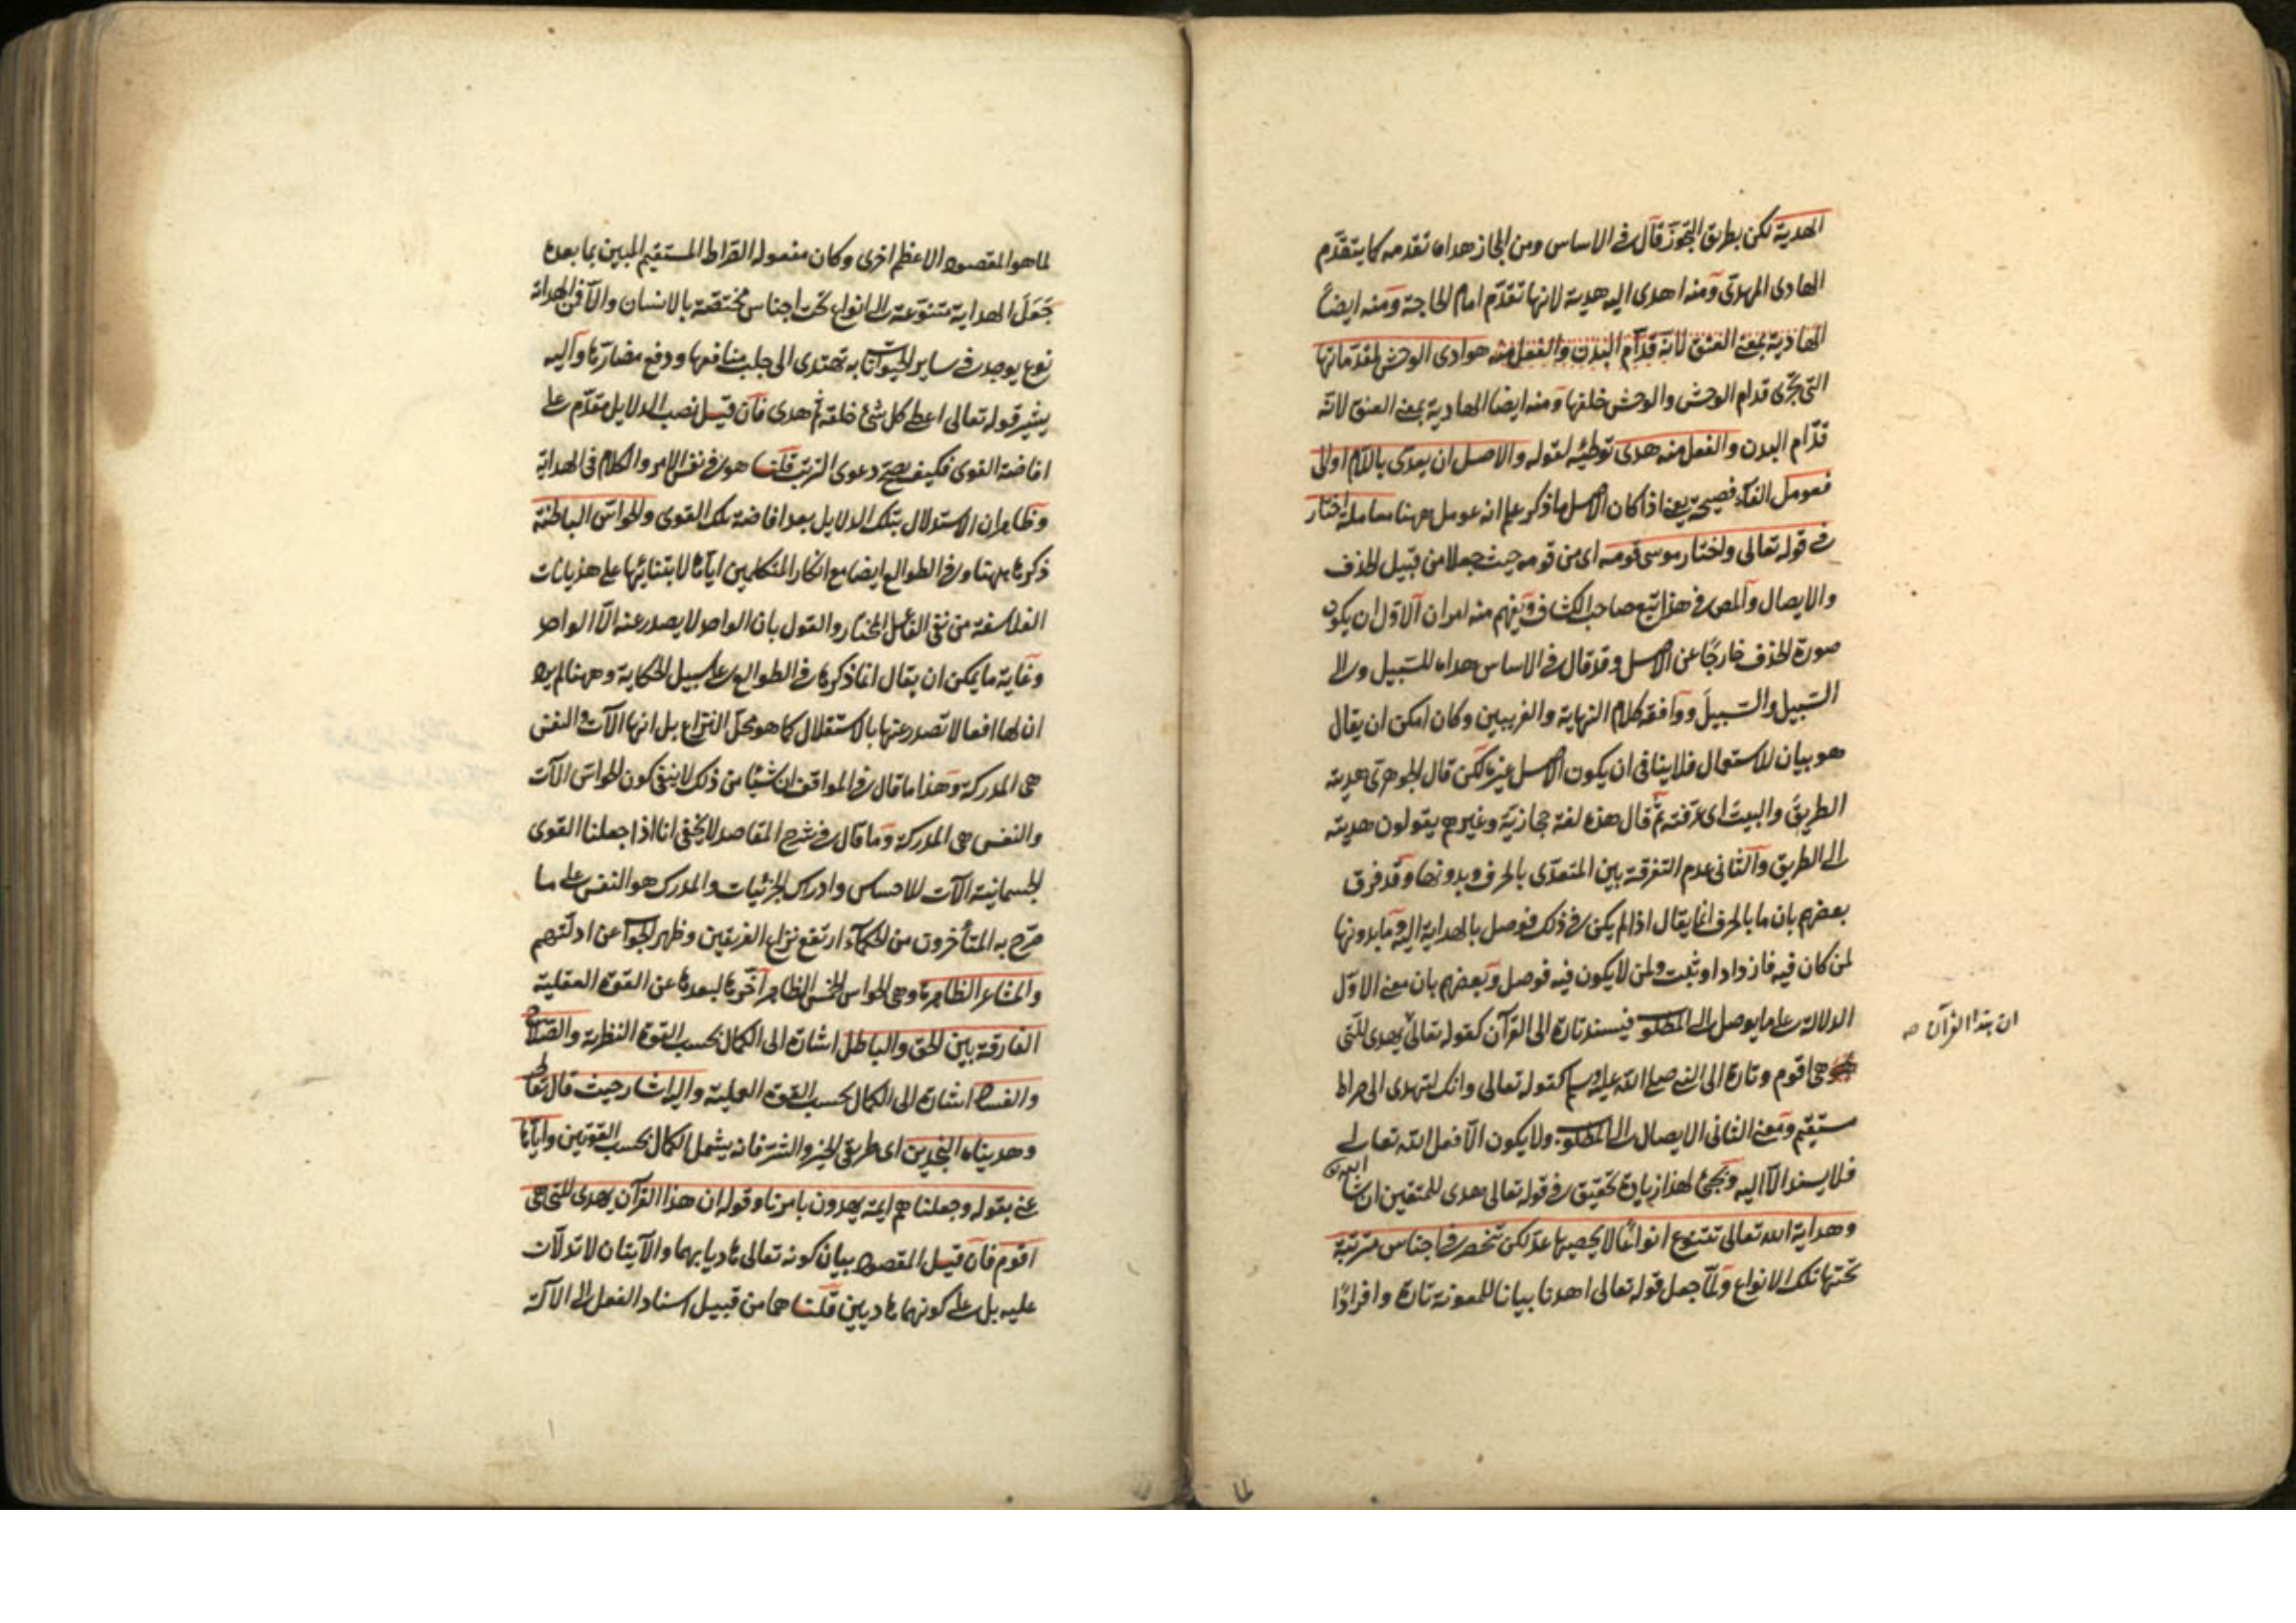 الهدية لكن بطريق التجوّز قال في الاساس ومن المجاز هداه تقدمه كما يتقدّم
الهادى المهدىّ ومنه اهدى اليه هدية لانها تقدّم امام الحاجة ومنه ايضاً
الهادية بمعنى العنق لانه قدّام البدن والفعل منه هوادى الوحش لمقدّماتها
التى تجرى قدام الوحش والوحش خلفها ومنه ايضا الهادية بمعنى العنق لانه
قدّام البدن والفعل منه هدى توطئة لقوله والاصل ان يعدّى باللام او الى
فعومل الفاء فصيحة يعنى اذا كان الاصل ما ذكر علم انه عومل ههنا معاملة اختار
في قوله تعالى واختار موسى قومه اى من قومه حيث جعلا من قبيل الحذف
والايصال والمص في هذا تبع صاحب الكشاف ويفهم منه امران الاوّل ان يكون
صورة الحذف خارجًا عن الاصل وقد قال في الاساس هداه للسّبيل والى
السّبيل والسّبيلَ ووافقه كلام النهاية والغريبين وكان امكن ان يقال
هو بيان للاستعمال فلا ينافى ان يكون الاصل غيره لكن قال الجوهرىّ هديته
الطريقَ والبيتَ اى عرّفته ثمّ قال هذه لغة حجازيّة وغيرهم يقولون هديته
الى الطريق والثانى عدم التفرقة بين المتعدّى بالحرف وبدونها وقد فرق
بعضهم بان ما بالحرف انما يقال اذا لم يكن في ذلك فوصل بالهداية اليه وما بدونها
لمن كان فيه فازداد او ثبت ولمن لا يكون فيه فوصل وبعضهم بان معنى الاوّل
الدلالة على ما يوصل الى المطلوب فيسند تارة الى القرآن كقوله تعالى يهدى للتى
ان هذا القرآن صه
هى اقوم وتارة الى النبى صلى الله عليه وسلم كقوله تعالى وانك لتهدى الى صراط
مستقيم ومعنى الثانى الايصال الى المطلوب ولا يكون الّا فعل الله تعالى
فلا يسند الّا اليه ويجئ لهذا زيادة تحقيق في قوله تعالى هدى للمتقين ان شاء الله تع
وهداية الله تعالى تتنوع انواعًا لا يحصيها عدّ لكن تنحصر في اجناس مترتبة
تحتها تلك الانواع ولمّا جعل قوله تعالى اهدنا بيانا للمعونة تارة وافرادًا
لما هو المقصود الاعظم اخرى وكان مفعوله الصراط المستقيم المبين بما بعده
جَعَلَ الهداية متنوّعة الى انواع تحت اجناس مختصّة بالانسان والّا فمن الهداية
نوع يوجد في ساير الحيوانات به تهتدى الى جلب منافعها ودفع مضارّها واليه
يشير قوله تعالى اعطى كل شئ خلقه ثم هدى فان قيل نصب الدلايل مقدّم على
افاضة القوى فكيف يصح دعوى الترتب قلنا هو في نفس الامر والكلام فى الهداية
وظاهر ان الاستدلال بتلك الدلايل بعد افاضة تلك القوى والحواسّ الباطنة
ذكرها ههنا وفى الطوالع ايضا مع انكار المتكلمين ايّاها لابتنائها على هذيانات
الفلاسفة من نفى الفاعل المختار والقول بان الواحد لا يصدر عنه الّا الواحد
وغاية ما يمكن ان يقال انما ذكرها في الطوالع على سبيل الحكاية وههنا لم يرد
ان لها افعالا تصدر عنها بالاستقلال كما هو محلّ النزاع بل انها الآت والنفس
هى المدركة وهذا ما قال في المواقف ان شيئا من ذلك لا ينفى كون الحواسّ الآت
والنفس هى المدركة وما قال في شرح المقاصد لا يخفى انا اذا جعلنا القوى
الجسمانية الآت للاحساس وادراك الجزئيات والمدرك هو النفس على ما
صرّح به المتأخرون من الحكماء ارتفع نزاع الفريقين وظهر الجواب عن ادلّتهم
والمشاعر الظاهرة وهى الحواس الخمس الظاهر اخّرها لبعدها عن القوة العقلية
الفارقة بين الحق والباطل اشارة الى الكمال بحسب القوة النظرية والصلاح
والفساد اشارة الى الكمال بحسب القوة العملية واليه اشار حيث قال تعالى
وهديناه النجدين اى طريقى الخير والشرّ فانه يشمل الكمال بحسب القوّتين وايّاها
عنى بقوله وجعلناهم ايمة يهدون بامرنا وقوله ان هذا القرآن يهدى للتى هى
اقوم فان قيل المقصود بيان كونه تعالى هاديا بهما والآيتان لا تدلّان
عليه بل على كونهما هاديين قلنا هما من قبيل اسناد الفعل الى الآلة